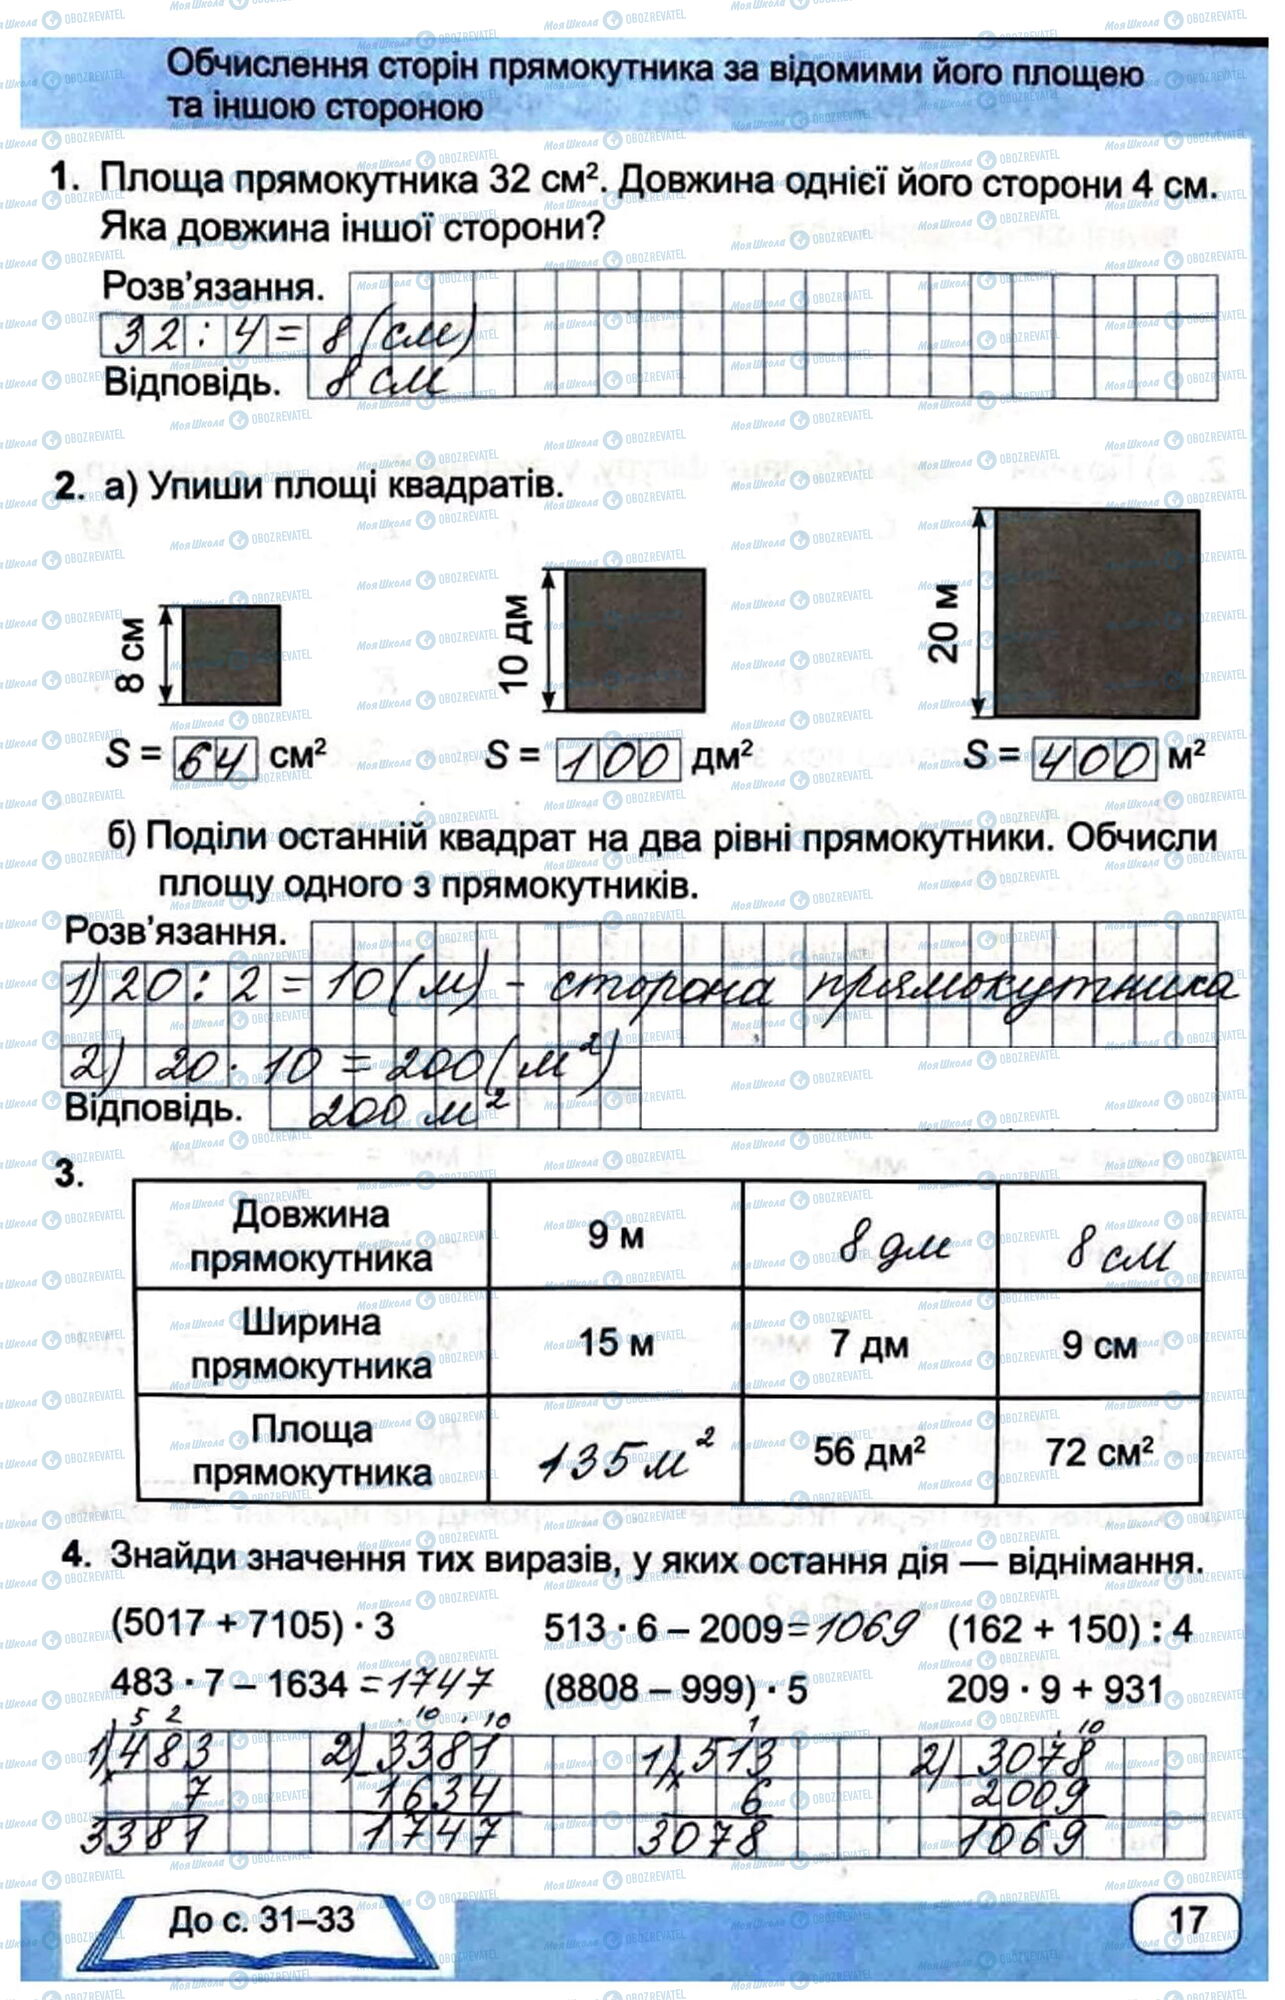 Обчислення сторін прямокутника за відомими його площею
та іншою стороною
1. Площа прямокутника 32 см². Довжина однієї його сторони 4 см.
Яка довжина іншої сторони?
Розв'язання.
32 : 4 = 8 (см)
Відповідь. 8 см
2. а) Упиши площі квадратів.
8 см
10 дм
20 м
S = 64 см²
S = 100 дм²
S = 400 м²
б) Поділи останній квадрат на два рівні прямокутники. Обчисли
площу одного з прямокутників.
Розв'язання.
1) 20 : 2 = 10 (м) - сторона прямокутника
2) 20 · 10 = 200 (м²)
Відповідь. 200 м²
3.
Довжина прямокутника 9 м 8 дм 8 см
Ширина прямокутника 15 м 7 дм 9 см
Площа прямокутника 135 м² 56 дм² 72 см²
4. Знайди значення тих виразів, у яких остання дія — віднімання.
(5017 + 7105) · 3 513 · 6 – 2009 = 1069 (162 + 150) : 4
483 · 7 – 1634 = 1747 (8808 – 999) · 5 209 · 9 + 931
5 2 · 10 · 10 1 · 10
1) 483 2) 3381 1) 513 2) 3078
× 7 – 1634 × 6 – 2009
3381 1747 3078 1069
До с. 31–33
17
Моя Школа OBOZREVATEL